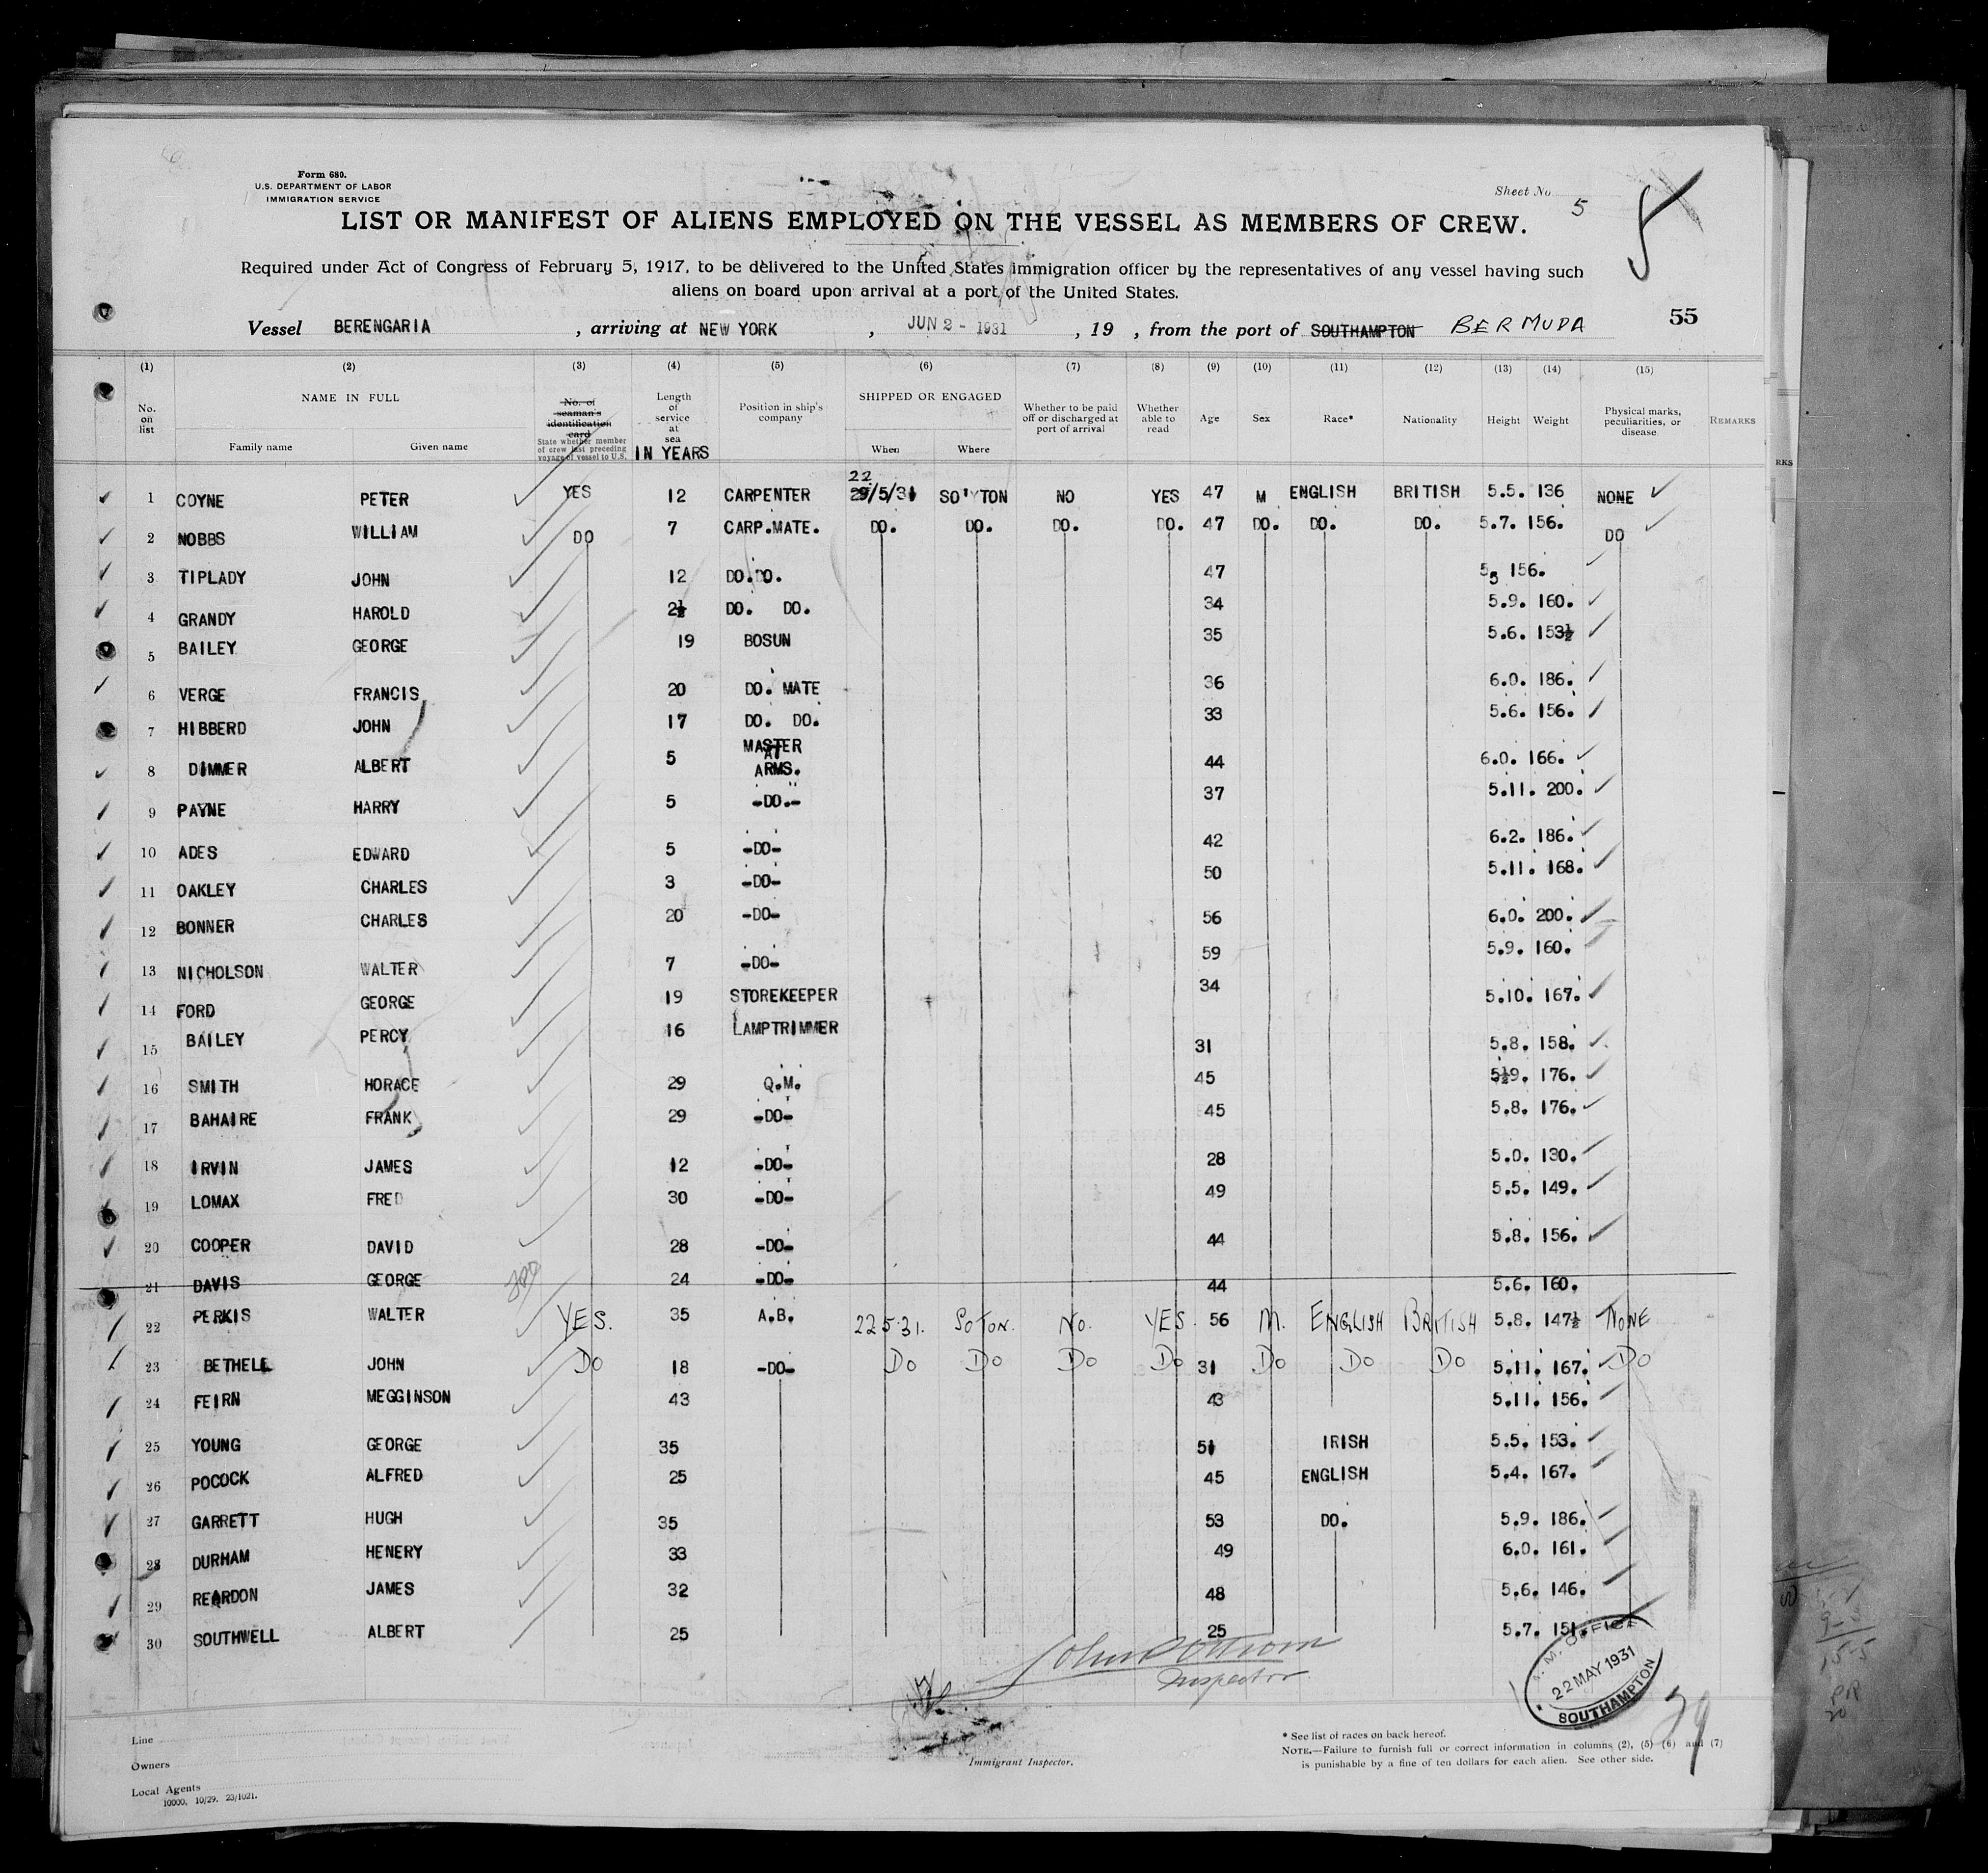 Form 680.
U.S. DEPARTMENT OF LABOR
IMMIGRATION SERVICE
Sheet No 5
LIST OR MANIFEST OF ALIENS EMPLOYED ON THE VESSEL AS MEMBERS OF CREW.
Required under Act of Congress of February 5, 1917, to be delivered to the United States immigration officer by the representatives of any vessel having such
aliens on board upon arrival at a port of the United States.
55
Vessel BERENGARIA, arriving at NEW YORK, JUN 2 - 1931, 19 , from the port of SOUTHAMPTON BERMUDA
(1) (2) (3) (4) (5) (6) (7) (8) (9) (10) (11) (12) (13) (14) (15)
No. on list
NAME IN FULL
Family name Given name
No. of seaman's identification card
State whether member of crew last preceding voyage of vessel to U.S.
Length of service at sea IN YEARS
Position in ship's company
SHIPPED OR ENGAGED
When Where
Whether to be paid off or discharged at port of arrival
Whether able to read
Age
Sex
Race*
Nationality
Height
Weight
Physical marks, peculiarities, or disease
REMARKS
1 COYNE PETER YES 12 CARPENTER 22/5/31 SO'TON NO YES 47 M ENGLISH BRITISH 5.5. 136 NONE
2 NOBBS WILLIAM DO 7 CARP.MATE. DO. DO. DO. DO. 47 DO. DO. DO. 5.7. 156. DO
3 TIPLADY JOHN 12 DO.DO. 47 5 5 156.
4 GRANDY HAROLD 2½ DO. DO. 34 5.9. 160.
5 BAILEY GEORGE 19 BOSUN 35 5.6. 153½
6 VERGE FRANCIS 20 DO. MATE 36 6.0. 186.
7 HIBBERD JOHN 17 DO. DO. 33 5.6. 156.
8 DIMMER ALBERT 5 MASTER AT ARMS. 44 6.0. 166.
9 PAYNE HARRY 5 -DO.- 37 5.11. 200.
10 ADES EDWARD 5 -DO- 42 6.2. 186.
11 OAKLEY CHARLES 3 -DO- 50 5.11. 168.
12 BONNER CHARLES 20 -DO- 56 6.0. 200.
13 NICHOLSON WALTER 7 -DO- 59 5.9. 160.
14 FORD GEORGE 19 STOREKEEPER 34 5.10. 167.
15 BAILEY PERCY 16 LAMPTRIMMER 31 5.8. 158.
16 SMITH HORACE 29 Q.M. 45 5½9. 176.
17 BAHAIRE FRANK 29 -DO- 45 5.8. 176.
18 IRVIN JAMES 12 -DO- 28 5.0. 130.
19 LOMAX FRED 30 -DO- 49 5.5. 149.
20 COOPER DAVID 28 -DO- 44 5.8. 156.
21 DAVIS GEORGE 24 -DO- 44 5.6. 160.
22 PERKIS WALTER YES. 35 A.B. 22.5.31. SOTON. NO. YES. 56 M. ENGLISH BRITISH 5.8. 147½ NONE
23 BETHELL JOHN DO 18 -DO- DO DO DO DO 31 DO DO DO 5.11. 167. DO
24 FEIRN MEGGINSON 43 43 5.11. 156.
25 YOUNG GEORGE 35 51 IRISH 5.5. 153.
26 POCOCK ALFRED 25 45 ENGLISH 5.4. 167.
27 GARRETT HUGH 35 53 DO. 5.9. 186.
28 DURHAM HENERY 33 49 6.0. 161.
29 REARDON JAMES 32 48 5.6. 146.
30 SOUTHWELL ALBERT 25 25 5.7. 151.
Inspector
OFFICE
22 MAY 1931
SOUTHAMPTON
Line
Owners
Local Agents
10000, 10/29. 23/1021.
Immigrant Inspector.
* See list of races on back hereof.
NOTE.—Failure to furnish full or correct information in columns (2), (5) (6) and (7)
is punishable by a fine of ten dollars for each alien. See other side.